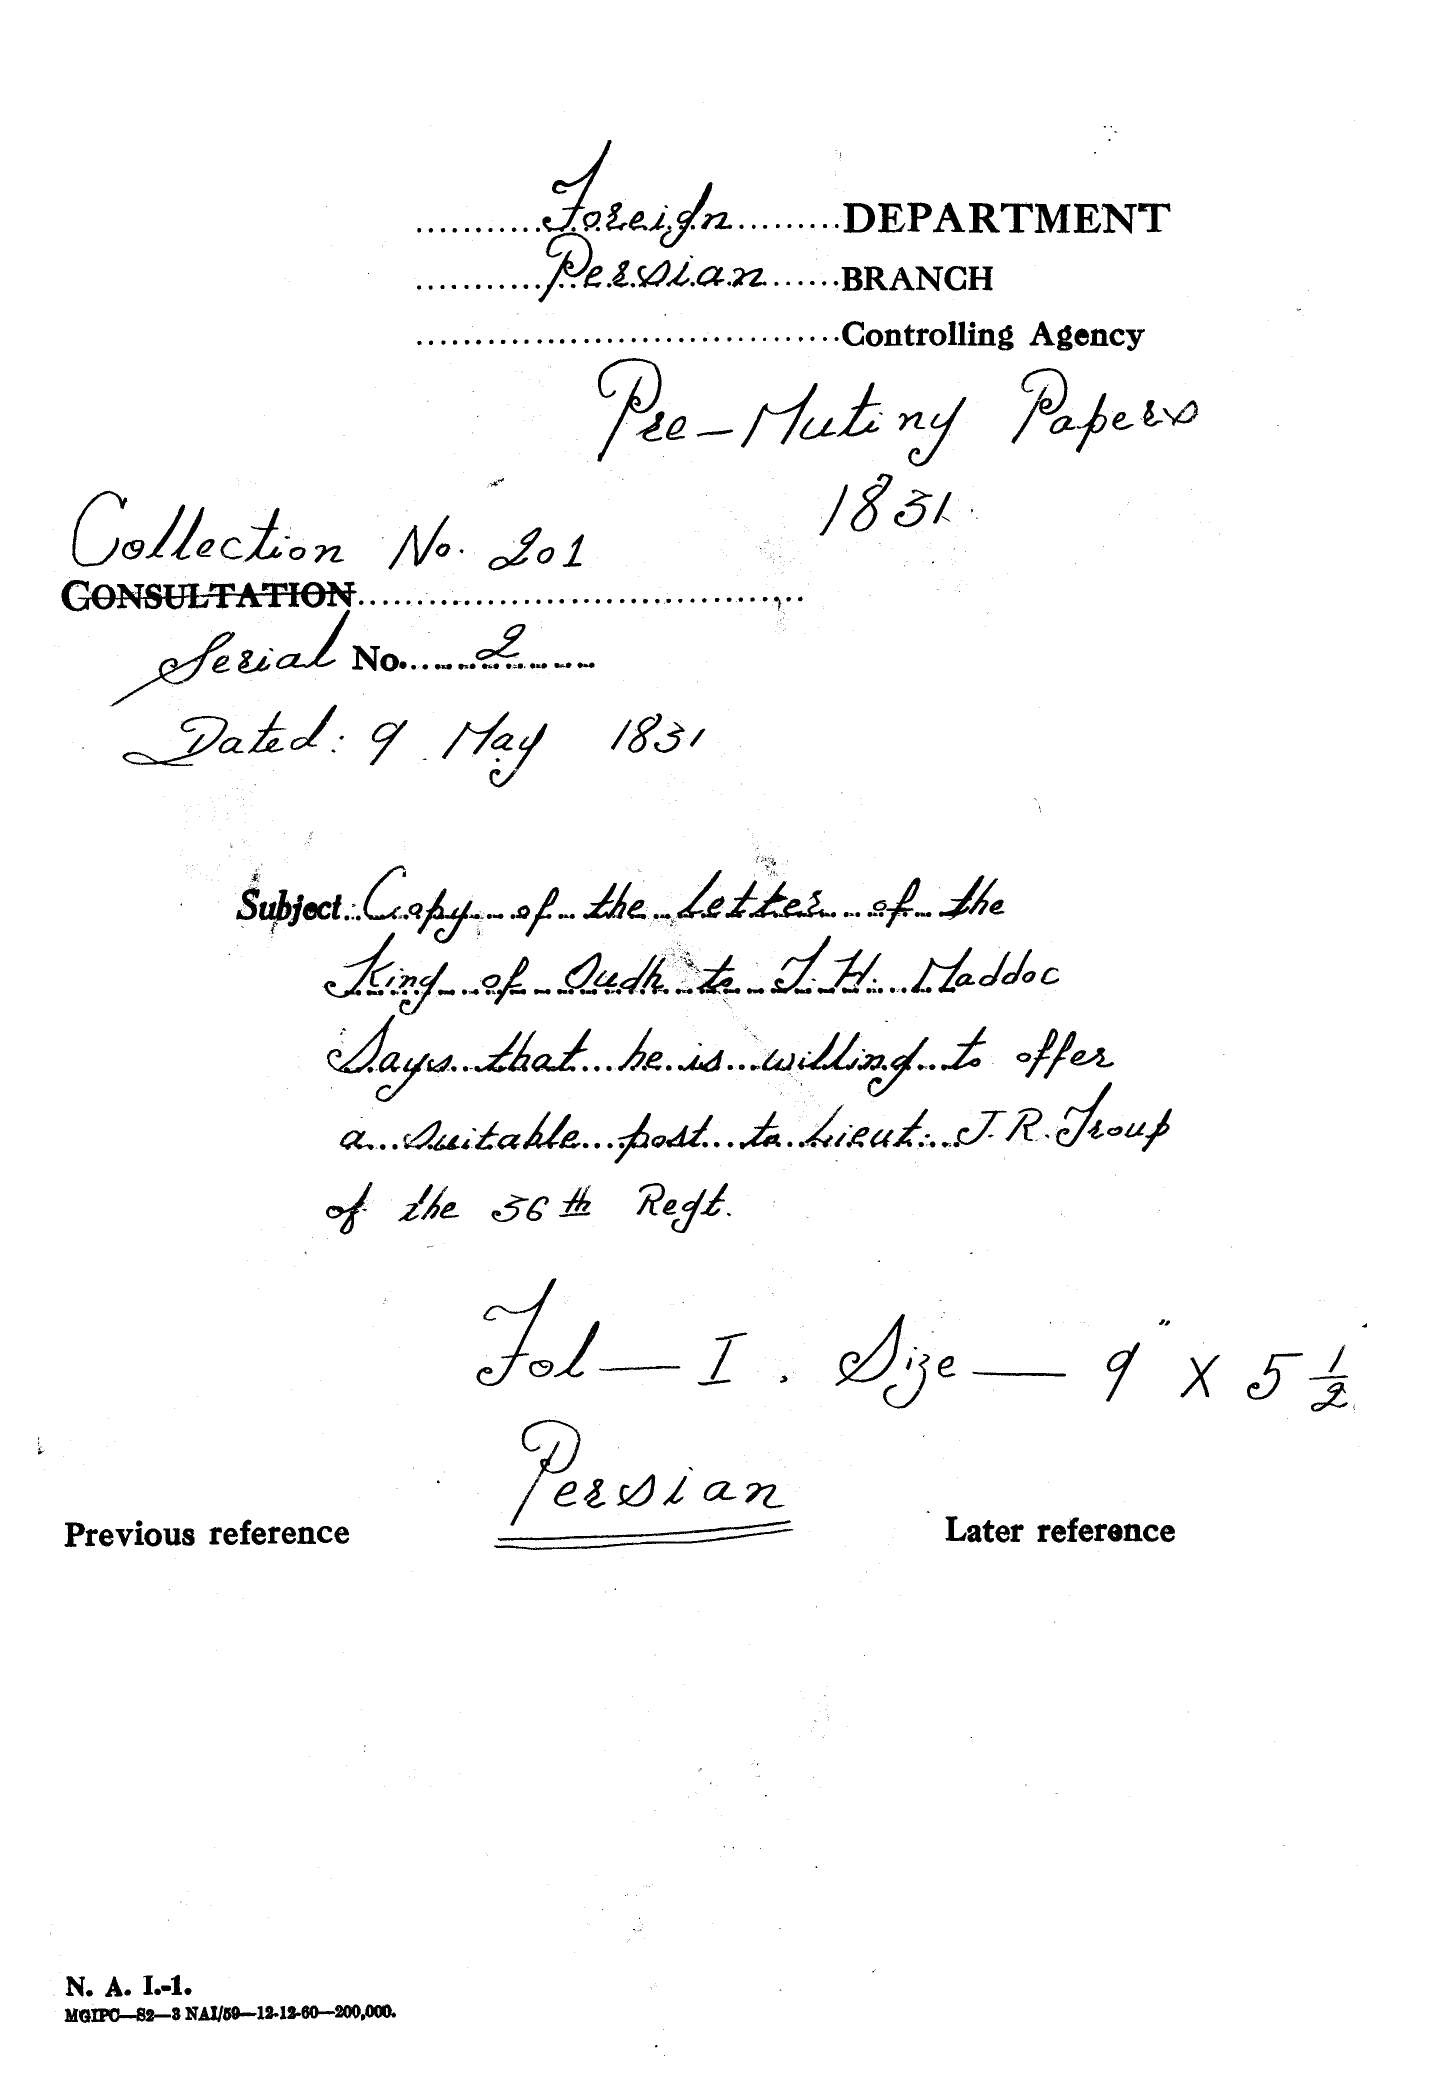 ...........Foreign.........DEPARTMENT
...........Persian.......BRANCH
...................................Controlling Agency
Pre-Mutiny Papers
1831.
Collection No. 201
CONSULTATION.....................................
Serial No. 2
Dated: 9 May 1831
Subject: Copy of the letter of the
King of Oudh to T. H. Maddoc
Says that he is willing to offer
a suitable post to Lieut: J. R. Troup
of the 36th Regt.
Fol — I. Size — 9" X 5 1/2
Persian
Previous reference Later reference
N. A. I.-1.
MGIPC—S2—3 NAI/59—12-12-60—200,000.